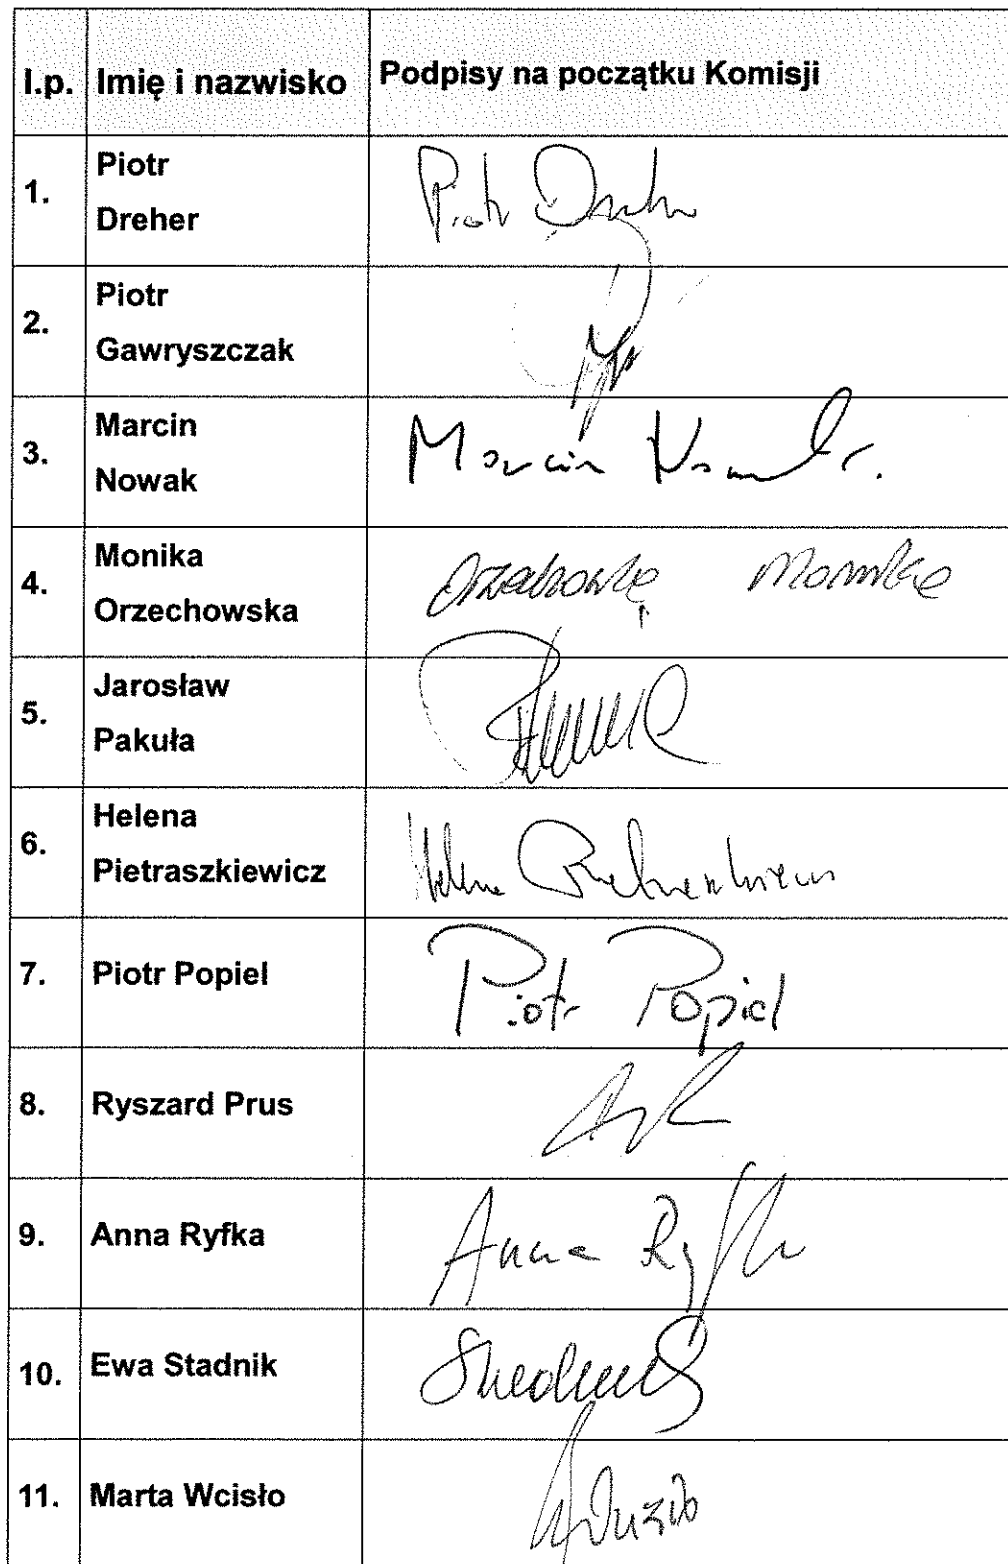 l.p. Imię i nazwisko Podpisy na początku Komisji
1. Piotr
Dreher
Piotr Dreher
2. Piotr
Gawryszczak
3. Marcin
Nowak
Marcin Nowak
4. Monika
Orzechowska
Orzechowska Monika
5. Jarosław
Pakuła
6. Helena
Pietraszkiewicz
Helena Pietraszkiewicz
7. Piotr Popiel Piotr Popiel
8. Ryszard Prus
9. Anna Ryfka Anna Ryfka
10. Ewa Stadnik
11. Marta Wcisło